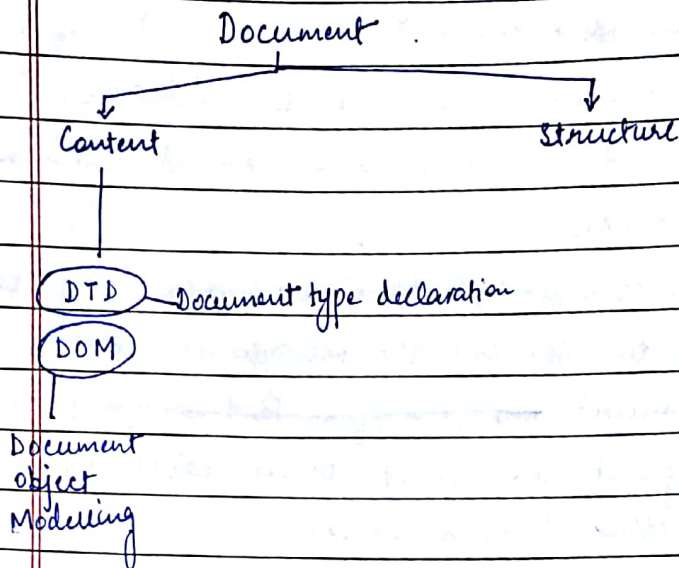 Document .
Content Structure
DTD Document type declaration
DOM
Document
Object
Modelling